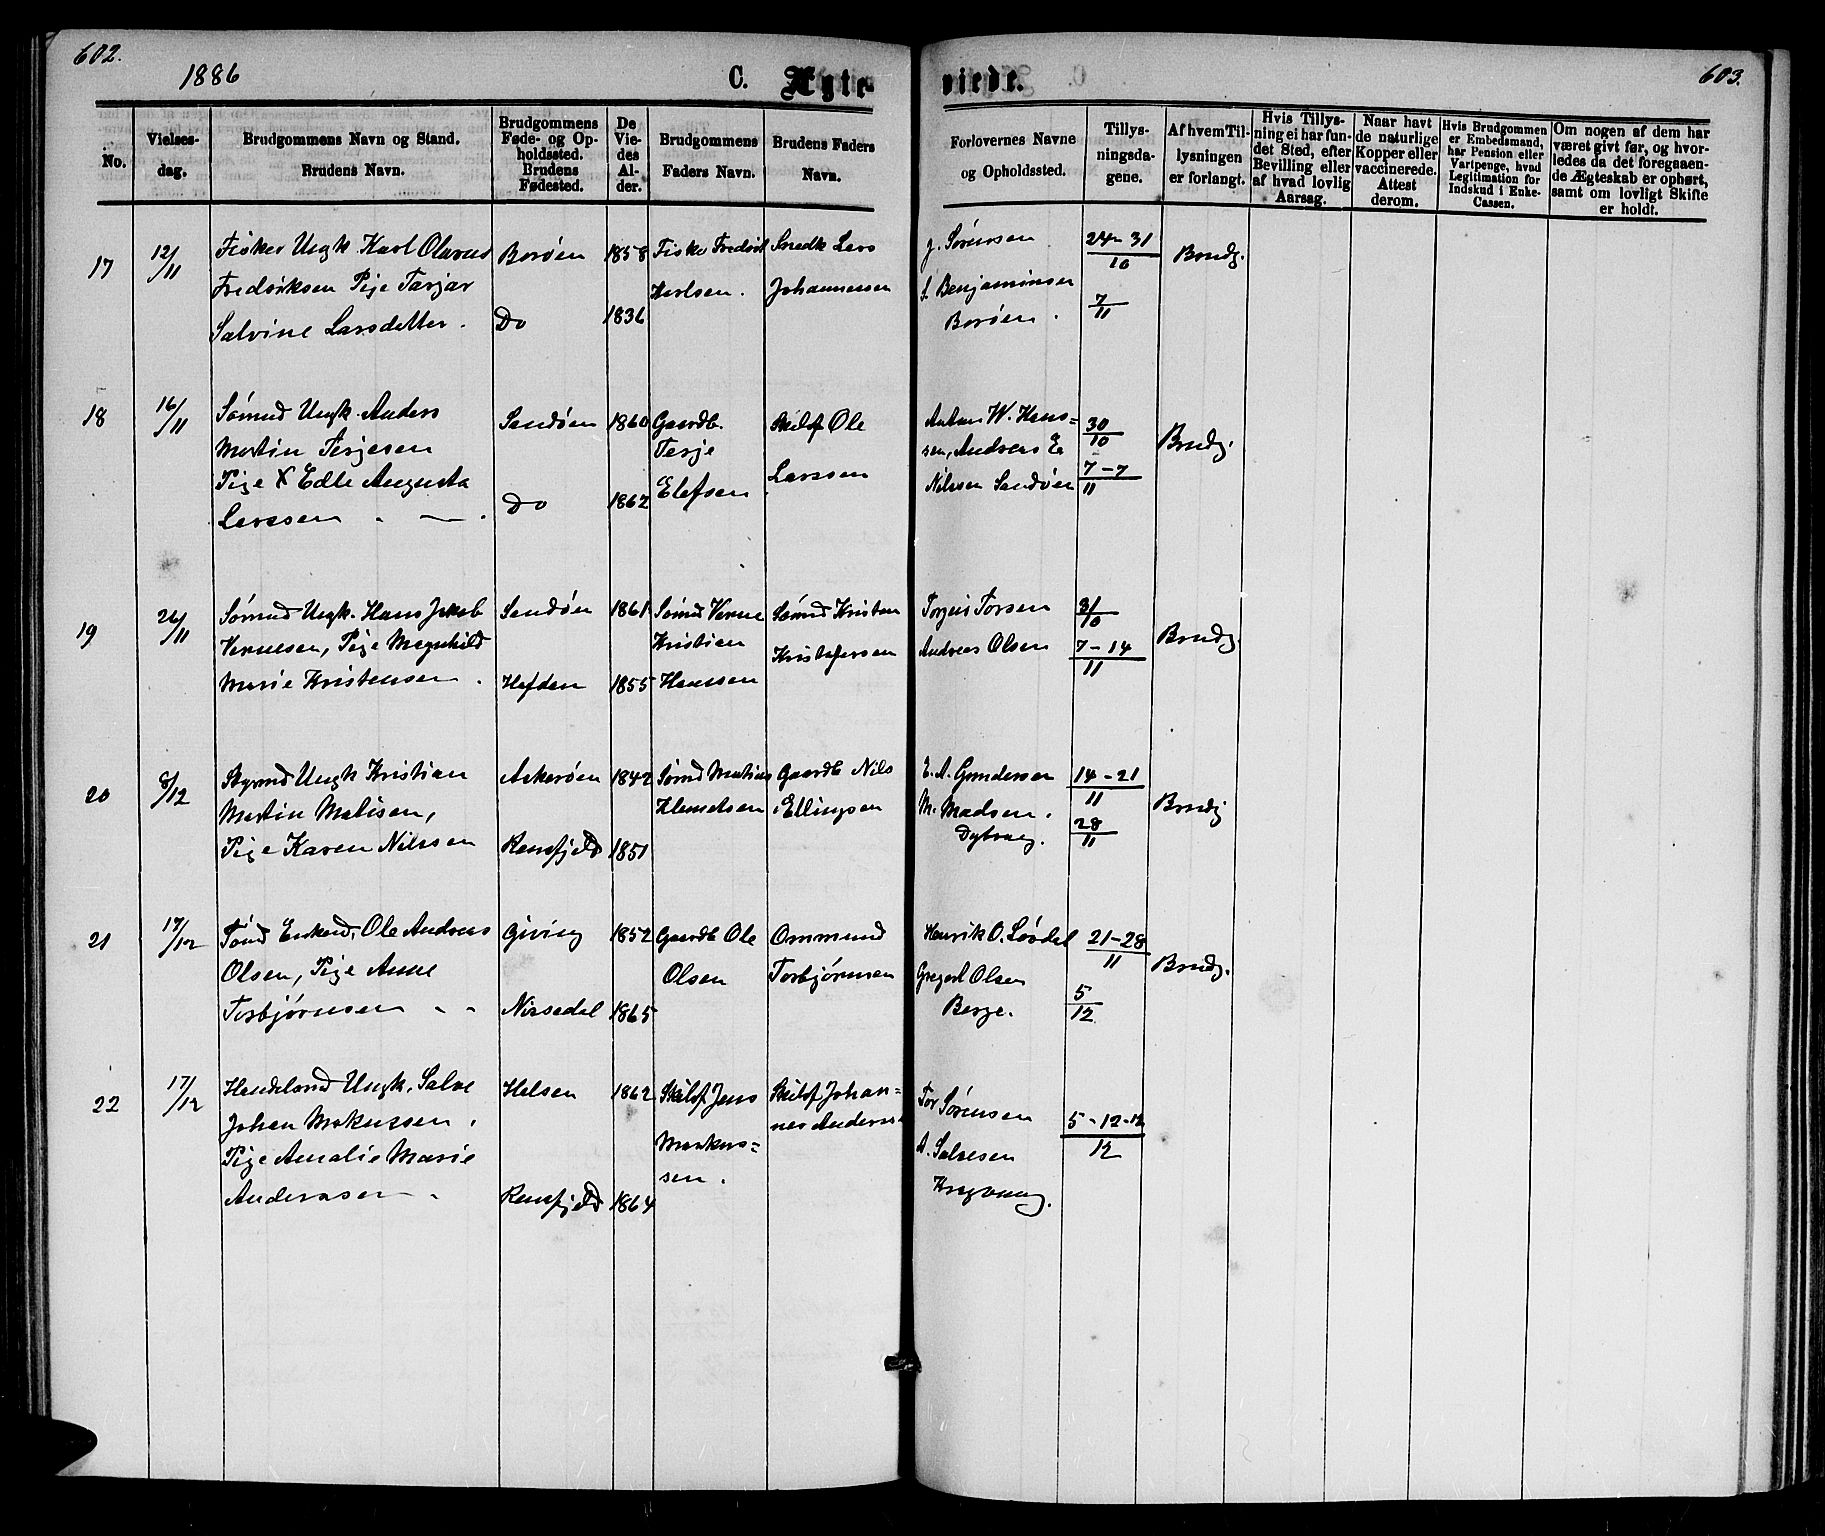 602.
1886
C. Ægte-
viede.
603.
No.
Vielses-
dag.
Brudgommens Navn og Stand.
Brudens Navn.
Brudgommens
Føde- og Op-
holdssted.
Brudens
Fødested.
De
Vie-
des
Al-
der.
Brudgommens
Faders Navn.
Brudens Faders
Navn.
Forlovernes Navne
og Opholdssted.
Tillys-
ningsda-
gene.
Af hvem Til-
lysningen
er forlangt.
Hvis Tillys-
ning ei har fun-
det Sted, efter
Bevilling eller
af hvad lovlig
Aarsag.
Naar havt
de naturlige
Kopper eller
vaccinerede.
Attest
derom.
Hvis Brudgommen
er Embedsmand,
har Pension eller
Vartpenge, hvad
Legitimation for
Indskud i Enke-
Cassen.
Om nogen af dem har
været givt før, og hvor-
ledes da det foregaaen-
de Ægteskab er ophørt,
samt om lovligt Skifte
er holdt.
17
12/11
Fisker Ungk Karl Olavus
Fredriksen Pige Tarjar
Salvine Larsdatter.
Borøen
Do
1858
1836
Fisker Fredrik
Karlsen.
Snedk Lars
Johannessen
J. Sørensen
S. Benjaminsen
Borøen.
24-31/10
7/11
Brudg.
18
16/11
Sømnd Ungk. Anders
Martin Terjesen
Pige X Edle Augusta
Larssen
Sandøen
Do
1860
1862
Gaardb.
Terje
Elefsen
Skibsf Ole
Larssen
Anton W. Hans=
sen, Andreas E
Nilssen Sandøen
30/10
7-7/11
Brudg.
19
26/11
Sømnd Ungk. Hans Jakob
Pige Magnhild
Marie Kristensen.
Sandøen
1861
1855
Sømnd
Kristian
Hanssen
Sømnd Kristen
Kristofersen
Torjus Torsen
Andreas Olsen
31/10
7-14/11
Brudg
20
8/12
Styrmd Ungk Kristian
Martin Matisen,
Pige Karen Nilssen
Askerøen
Ramsfjeld
1842
1851
Sømd Matias
Klemetsen
Gaardb Nils
Ellingsen
E. A. Gundersen
M. Madsen.
Dybvaag.
14-21/11
28/11
Brudg
21
17/12
Tømd Enkemd. Ole Andreas
Olsen, Pige Anne
Torbjørnsen
Giving
Nissedal
1852
1865
Gaardb Ole
Olsen
Ommund
Torbjørnsen
Henrik O. Løvdal
Gregert Olsen
Berge.
21-28/11
5/12
Brudg.
22
17/12
Handelsmd Ungk. Salve
Johan Markussen.
Pige Amalie Marie
Anderssen
Ramsfjeld
1862
1864
Skibsf Jens
Markus=
sen.
Skibsf Johan=
nes Anderssen
Tor Sørensen
A. Salvesen
5-12-12/12